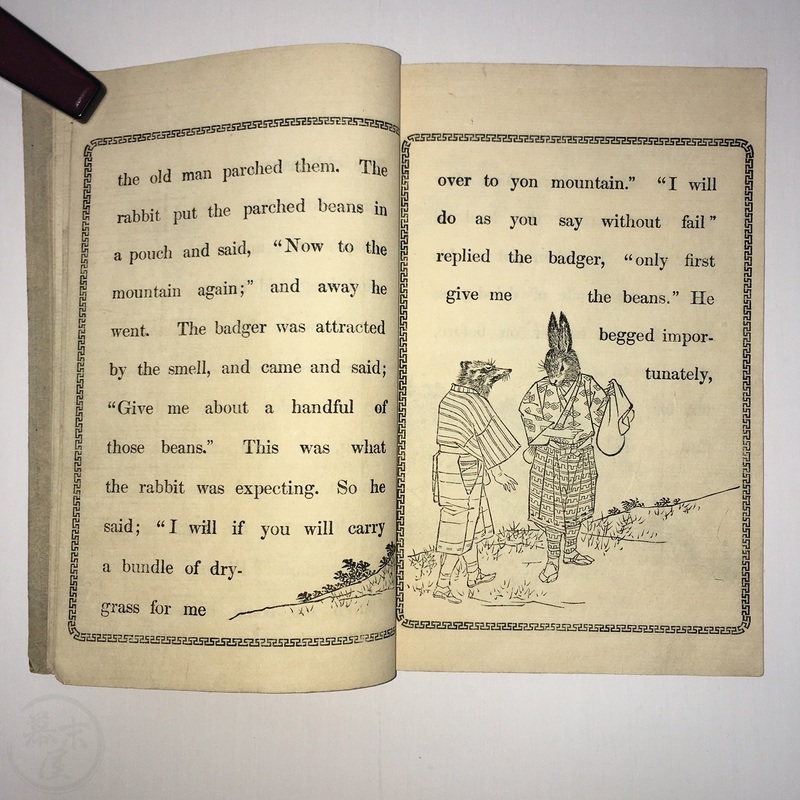 the old man parched them. The
rabbit put the parched beans in
a pouch and said, “Now to the
mountain again;” and away he
went. The badger was attracted
by the smell, and came and said;
“Give me about a handful of
those beans.” This was what
the rabbit was expecting. So he
said; “I will if you will carry
a bundle of dry-
grass for me
over to yon mountain.” “I will
do as you say without fail”
replied the badger, “only first
give me the beans.” He
begged impor-
tunately,
幕末屋